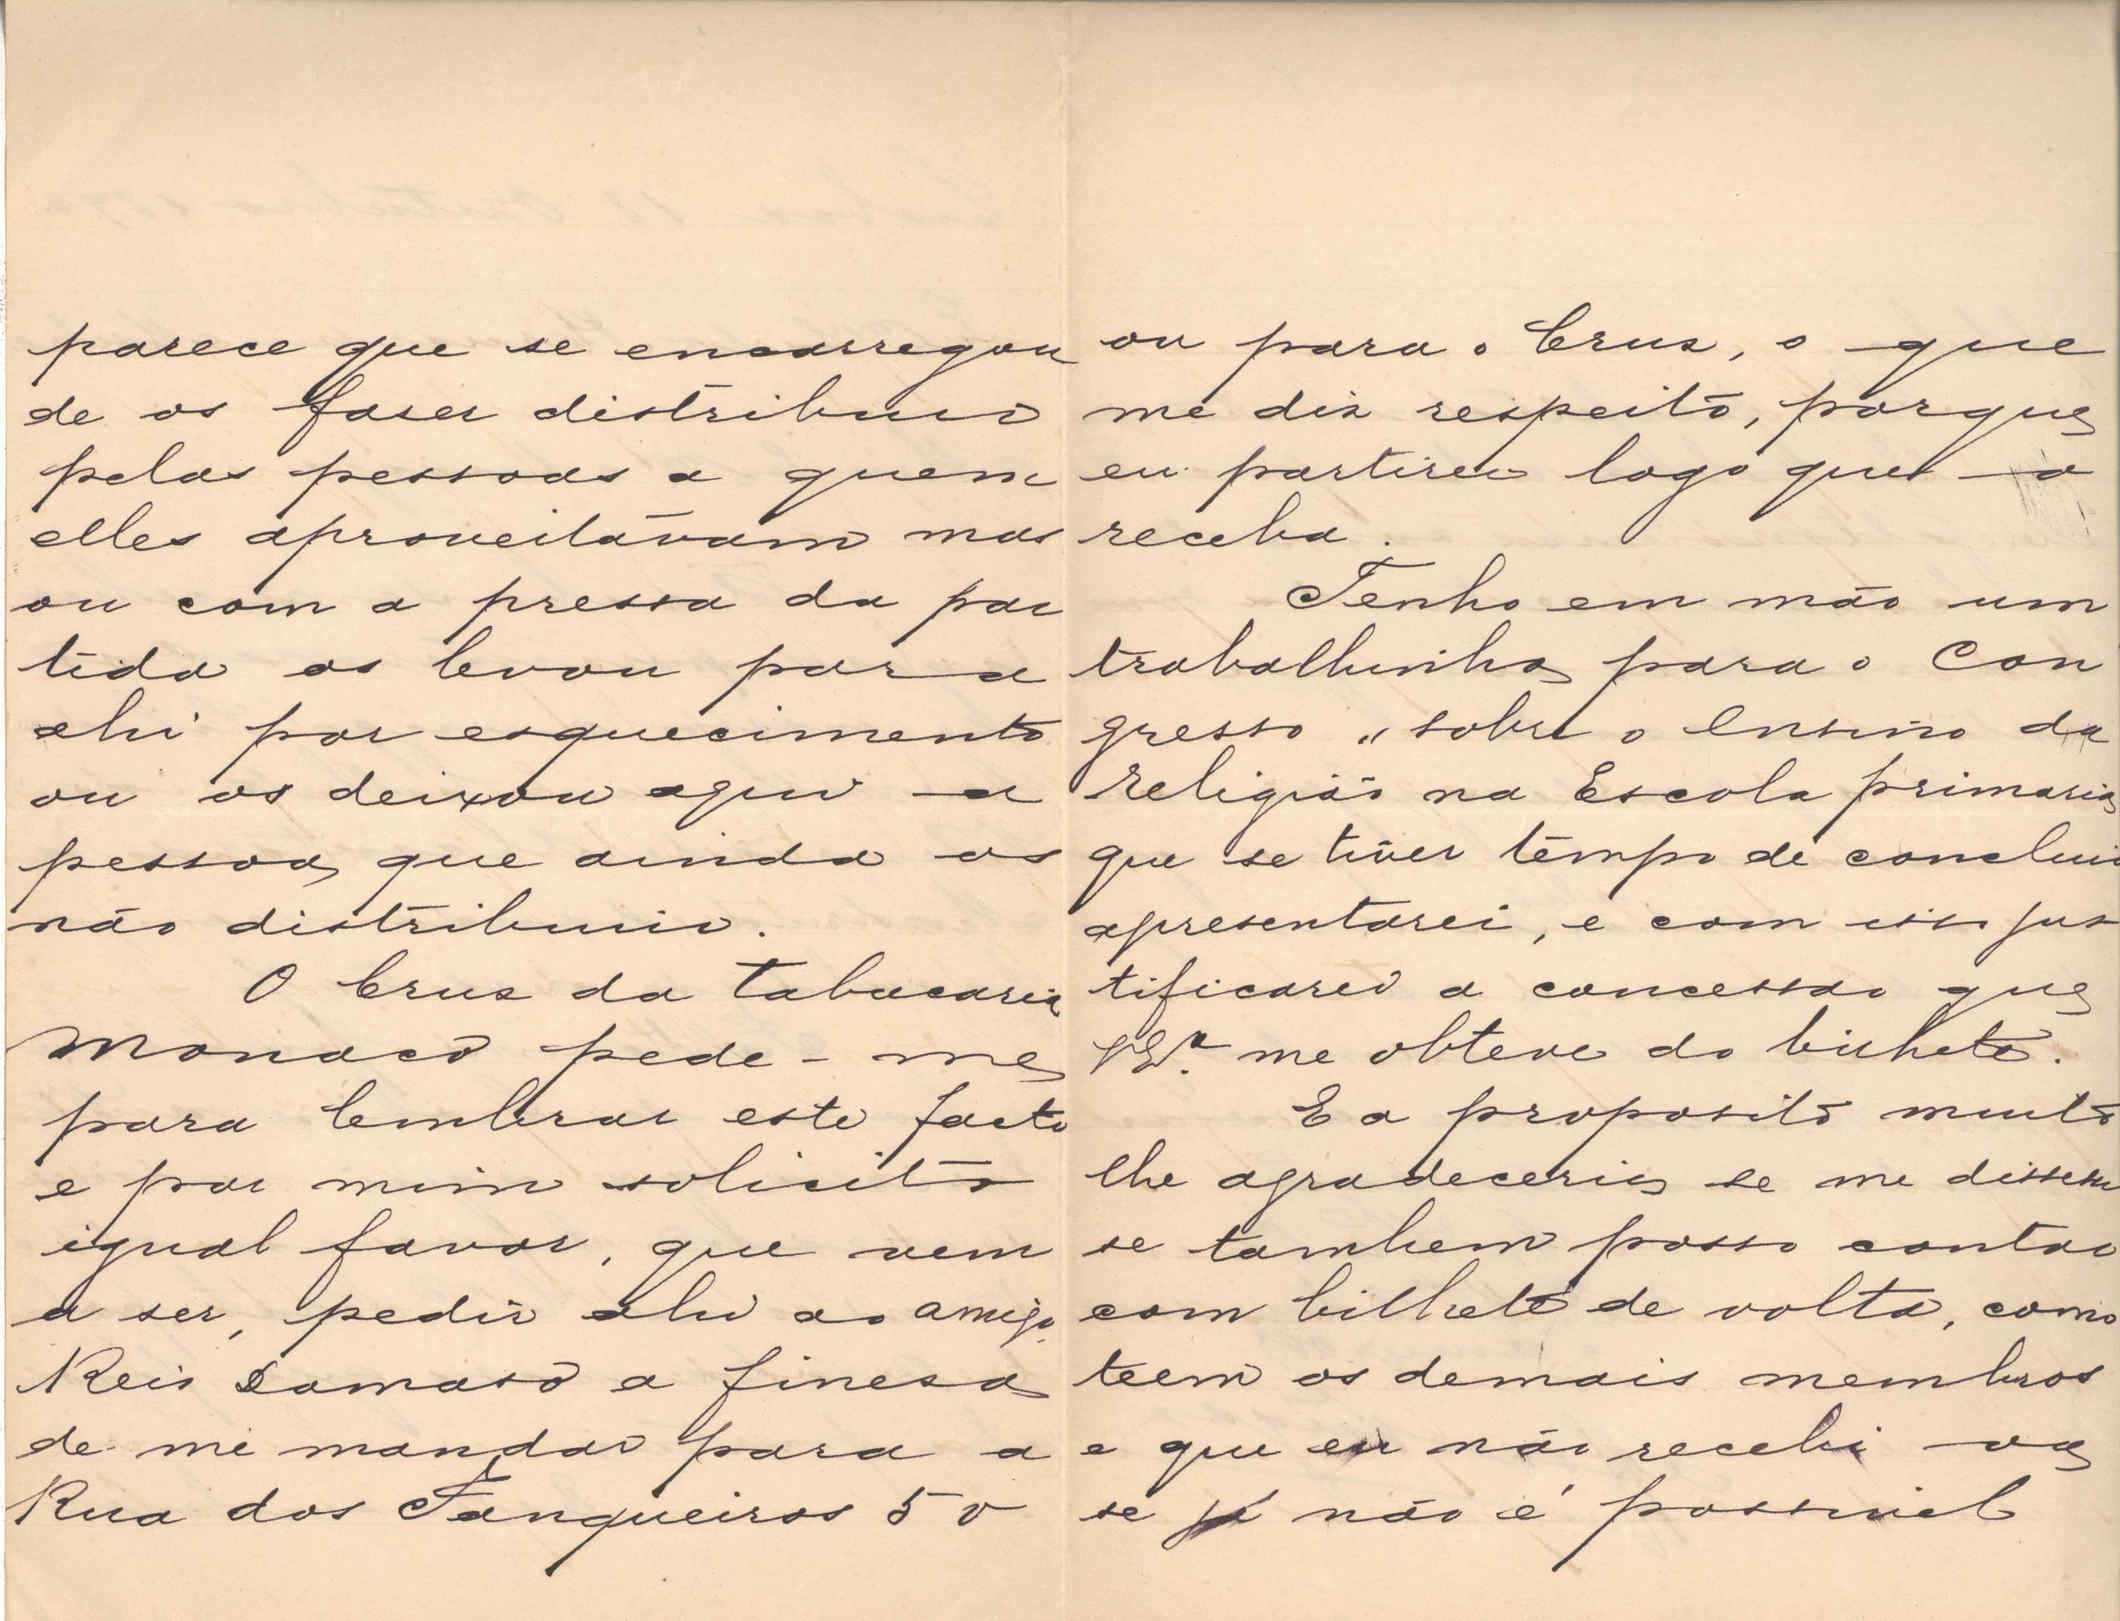 parece que se encarregou
de os faser distribuir
pelas pessoas a quem
elles aproveitávam mas
ou com a pressa da par
tida os levou para
ahi por esquecimento
ou os deixou aqui a
pessoa que ainda os
não distribuiu.
O Crus da Tabacaria
Monaco pede-me
para lembrar este facto
e por mim solicito
igual favor, que vem
a ser, pedir ahi ao amigo
Reis Damaso a finesa
de me mandar para a
Rua dos Fanqueiros 50
ou para o Crus, o que
me diz respeito, porque
eu partirei logo que o
receba.
Tenho em mão um
trabalhinho para o Con
gresso "sobre o Ensino da
religião na Escola primaria
que se tiver tempo de concluir
apresentarei, e com isso jus
tificarei a concessão que
V. Ex.ª me obteve do bilhete.
E a proposito muito
lhe agradeceria se me dissesse
se tambem posso contar
com bilhete de volta, como
teem os demais membros
e que eu não recebi ou
se já não é possivel